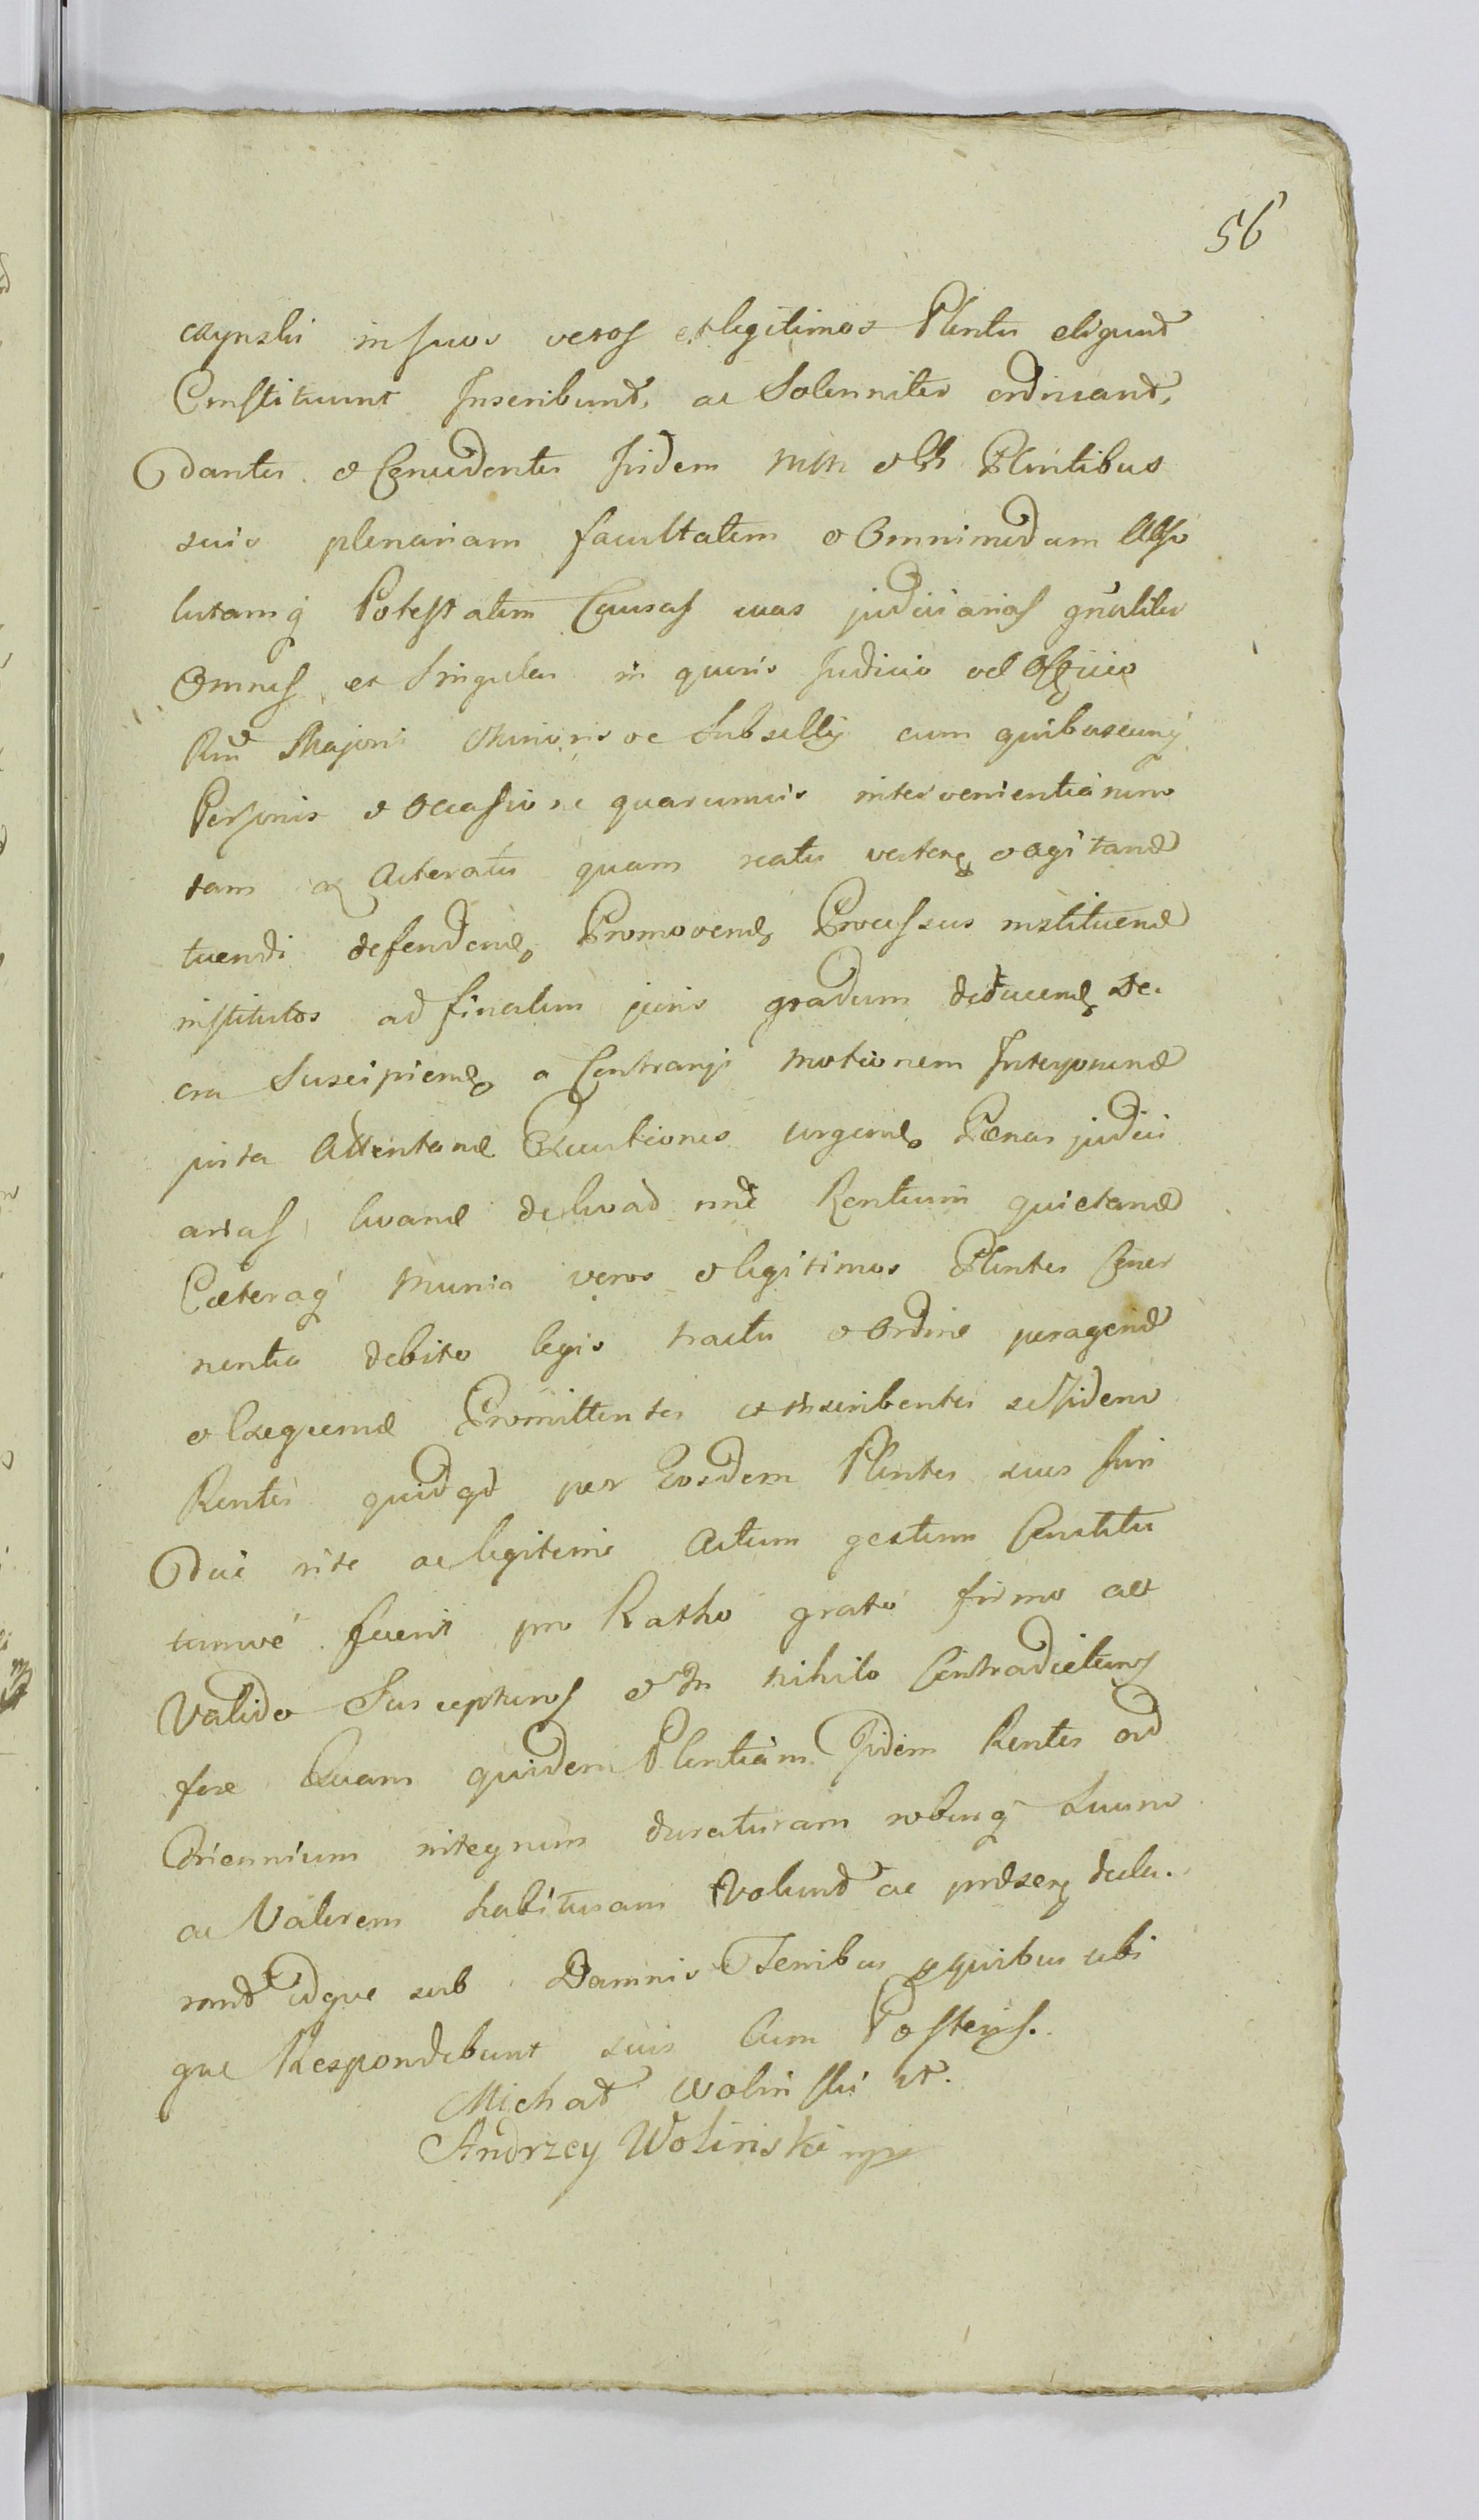 56
czynski in suos veros et legitimos Plentes eligunt
Constituunt Inscribunt, ac Solenniter ordinant,
dantes et Concedentes Iisdem MM et GG Plentibus
suis plenariam facultatem et Omnimodam Abso
lutamq Potestatem Causas suas judiciarias gnaliter
Omnes et Singulas in quovis Judicio vel Officio
Rni Majoris Minorisve Subsellij cum quibuscunq
Personis et Occasione quarumvis intervenientiarum
tam ex Actoratu quam reatu vertere et agitand
tuendi defendend Promovend Processus instituend
institutos ad finalem juris gradum deducend De
cra Suscipiend a Contrarijs Motionem Interponend
justa Attentand Executiones urgend Pænas judici
arias luvand de luvad Rentium quietand
Cæteraq Munia veros et legitimos Plentes Concer
nentia debito legis tractu et Ordine peragend
et Exequend Promittentes et inscribentes se Iidem
Rentes quidqd per Eosdem Plentes suos Juri
dice rite ac legitime Actum gestum Constitu
tumve fuerit pro Ratho grato firmo ac
Valido Suscepturos et In nihilo Contradicturos
fore Quam quidem Plentiam Iidem Rentes ad
Triennium integrum duraturam roburq Suum
ac Valorem habituram Volunt ac præsen decla
rant idque sub Damnis Terribus pro quibus ubi
que Respondebunt suis Cum Posteris.
Michał Wolinski
Andrzey Wolinski mp